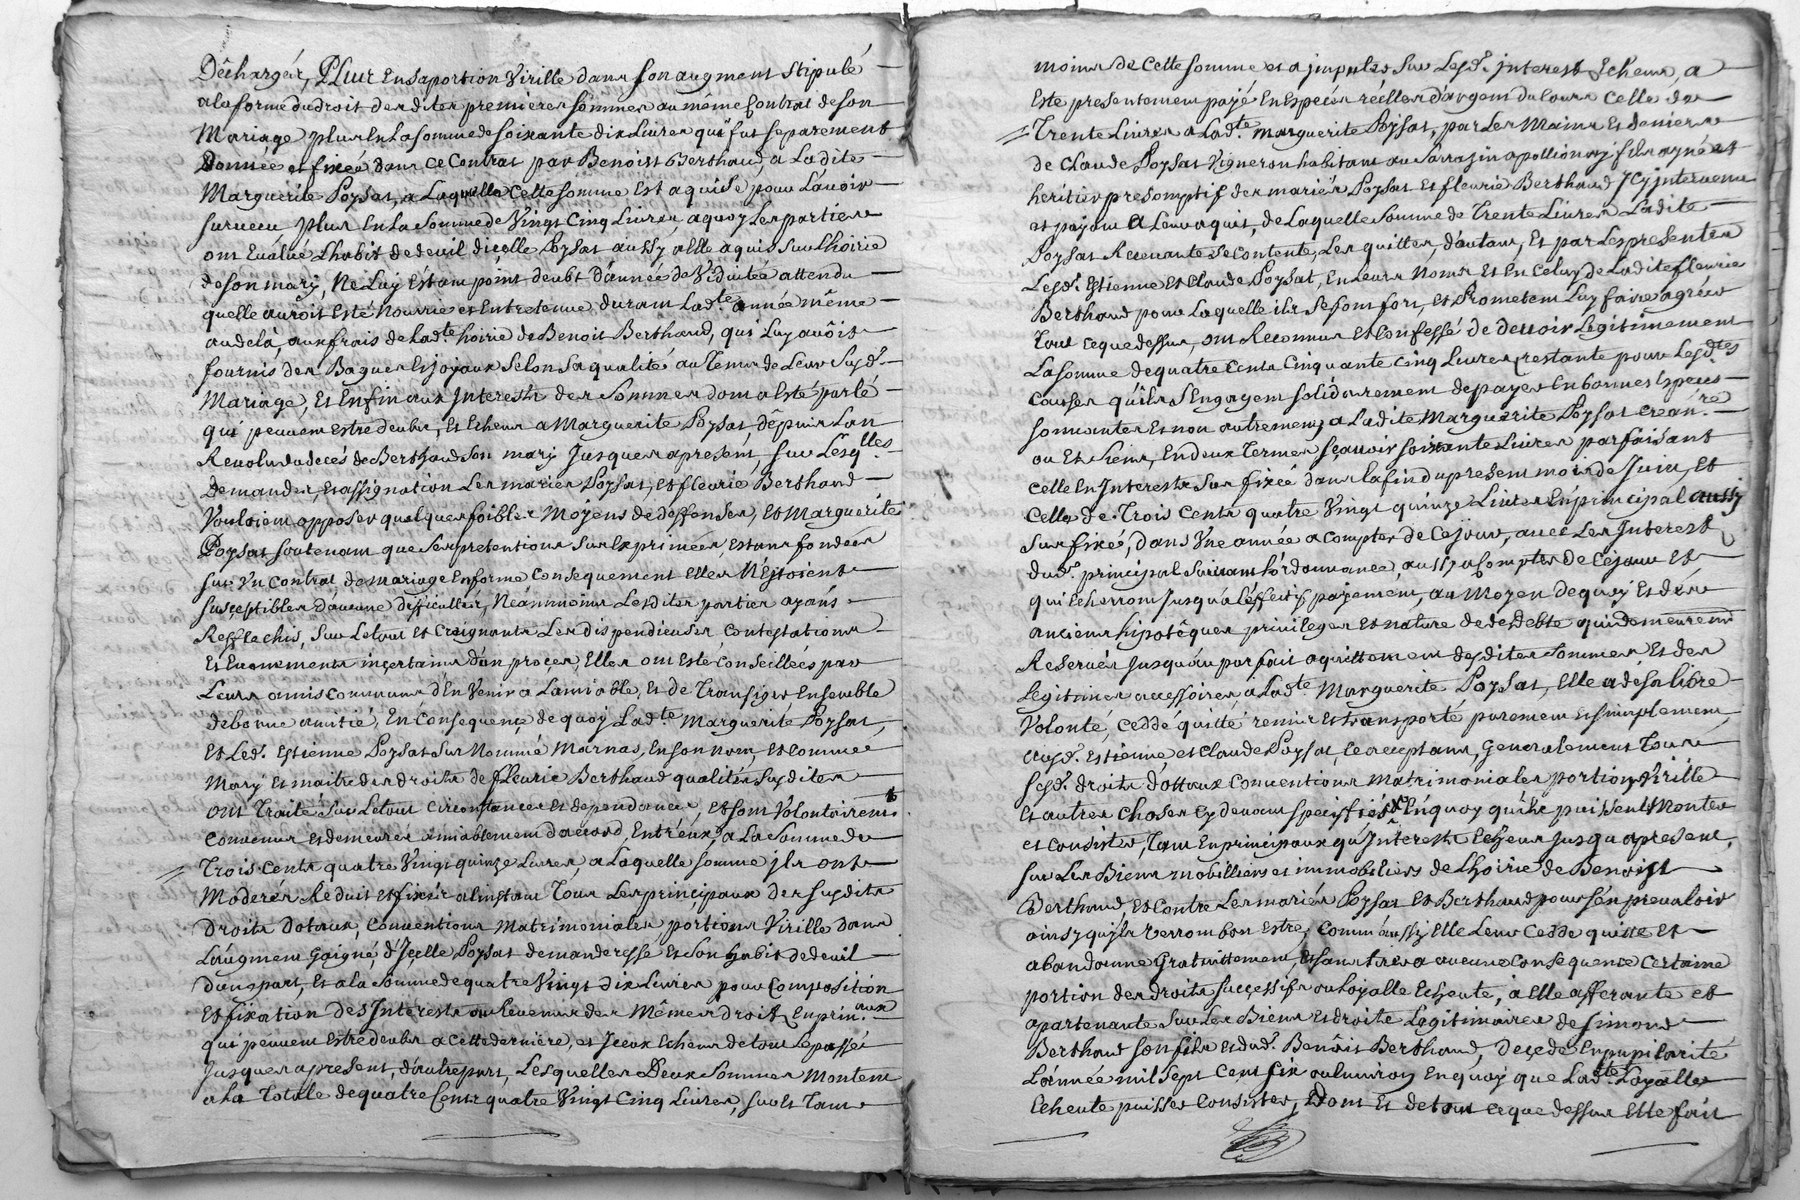 Dêchargér, Plus En sa portion Virille dans son augment Stipulé
a la forme du droit desdites premieres sommes au même Contrat de son
Mariage plus En La somme de soixante dix Livres qui fut separement
Donnée et fixée dans ce Contrat par Benoist Berthaud, a La dite
Marguerite Poysat, a Laquelle Cette somme Est aquise pour L'avoir
survecu plus En La somme de Vingt Cinq Livres, a quoy Les parties
ont Evalué L'habit de deuil d'içelle Poysat aussy a Elle aquis Sur L'hoirie
de son mary, Ne Luy Etant point deubt d'année de Viduitée attendu
quelle auroit Esté Nourrie et Entretenue durant Ladte. année même
audela, aux frais de Ladte. hoirie de Benoit Berthaud, qui Luy avôit
fournis des Bagues Et joyaux Selon Sa qualité au Tems de Leur Susdt.
Mariage, Et Enfin aux Interests des Sommes dont a Esté parlé
qui peuvent Estre deubs, Et Echeus a Marguerite Poysat, dêpuis L'an
Revolu du decés de Berthaud son mary Jusques apresent, sur Lesqlles.
Demandes, Et assignation Les mariés Poysat, et fleurie Berthaud
Vouloient opposer quelques foibles Moyens de deffenses, Et Marguerite
Poysat soutenant que Ses pretentions Sus Exprimées, Estans fondées
sur Un Contrat de mariage En forme Consequement Elles N'êstoient
susçeptibles d'aucune difficultée, Néanmoins Lesdites parties ayans
Refflechis, sur Le tout Et Craignants Les dispendieuses Contestations
Et Evenements inçertains d'un proçes, Elles ont Esté Conseillées par
Leurs amis Communs d'En Venir a Lamiable, Et de Transiger Ensemble
de bonne amitié, En Consequençe de quoy Ladte Marguerite Poysat,
Et Ledt. Estienne Poysat sur Nommé Marnas, En son Nom Et Comme
Mary Et maitre des droits de fleurie Berthaud qualités susdites
ont Traité Sur Le tout Circonstances Et dependances, Et sont Volontairemt.
Convenus Et demeurés amiablement d'accord, Entr'eux, a La Somme de
Trois Cents quatre Vingt quinze Livres, a Laquelle somme ils ont
Moderés Reduit Et fixés a linstant Tous Les principaux des susdits
Droits dotaux, Conventions Matrimoniales portions Virille dans
L'augment Gaigné, d'Içelle Poysat demanderesse Et son habit de deuil
d'une part, Et a la Somme de quatre Vingt dix Livres pour Composition
Et fixation des Interests ou Revenus des Mêmes droits En prinaux.
qui peuvent Estre deubs a Cette derniére, et Iceux Echeus de tout Le passé
Jusques apresent, d'autre part, Lesquelles Deux Sommes Montent
a La Totalle de quatre Cents quatre Vingt Cinq Livres, sur Et Tant
moins de Cette Somme et a jmputer Sur Lesdt. jnterest Echeus, a
Esté presentement payé En Especes réelles d'argent du Cours Celle de
Trente Livres a Ladte. Marguerite Poysat, par Les Mains Et deniers
de Claude Poysat Vigneron habitant au Sarrazin apollionay fils ayné et
heritier presomptif des mariés Poysat Et fleurie Berthaud Icy intervenu
et payant a Leur aquit, de Laquelle Somme de Trente Livres Ladite
Poysat Recevante se Contente, Les quitter, d'autant, Et par Les presentes
Lesdt. Estienne Et Claude Poysat, En Leurs Noms Et En Celuy de Ladite fleurie
Berthaud pour Laquelle ils se font fort, et Prometent Luy faire agréer
Tout Ce que dessus, ont Reconnus Et Confessé de devoir Legitimement
La somme de quatre Cents Cinquante Cinq Livres restante pour Lesdtes
Causes qu'ils S'Engagent solidairement de payer En bonnes Especes
sonnantes Et non autrement, a Ladite Marguerite Poysat Creanre.
ou Et Siens, En deux Termes sçavoir soixante Livres parfaisant
Celle En Interests Sus fixée dans La fin du present mois de Juin, Et
Celle de Trois Cents quatre Vingt quinze Livres En principal aussy
Sus fixée, dans Une année a Compter de Ce jour, avec Les Interest
dudt. principal Suivant L'ordonnance, aussy a Compter de Ce jour Et
qui Echerront Jusqu'a L'Effectif payement, au Moyen de quoy Et des
anciens hipotêques privileges Et nature de ses debte qui demeurent
Reservés Jusqu'au parfait aquittement desdites Sommes Et des
Legitimes accessoires, a Ladte Marguerite Poysat, Elle a de sa libre
Volonté, Ceddé quitté remis Et transporté purement Et simplement,
ausdt. Estienne et Claude Poysat, Ce acceptant, Generalement Tous
sesdt. droits dottaux Conventions matrimoniales portion Virille
Et autres Choses Cy devant speciffiés En quoy qu'ils puissent Monter
et Consister, Tant En principaux qu'Interests Echeus Jusqu'apresent,
sur Les Biens mobilliers et immobiliers de L'hoirie de Benoist
Berthaud, Et Contre Les mariés Poysat Et Berthaud pour s'en prevaloir
ainsy qu'ils verront bon Estre, Comm'aussy Elle Leur Cedde quitte Et
abandonne Gratuittement, Et sans tirer a aucune Consequence Certaine
portion des droits sucçessifs ou Loyalle Echeute, a Elle afferante et
apartenante Sur Les Biens Et droits Legitimaires de Simond
Berthaud son fils Et dudt. Benôit Berthaud, Deçedé En pupilarité
L'année mil Sept Cent six ou Environ En quoy que Ladte Loyalle
Echeute puisses Consister, Dont Et de tout Ce que dessus Elle fait